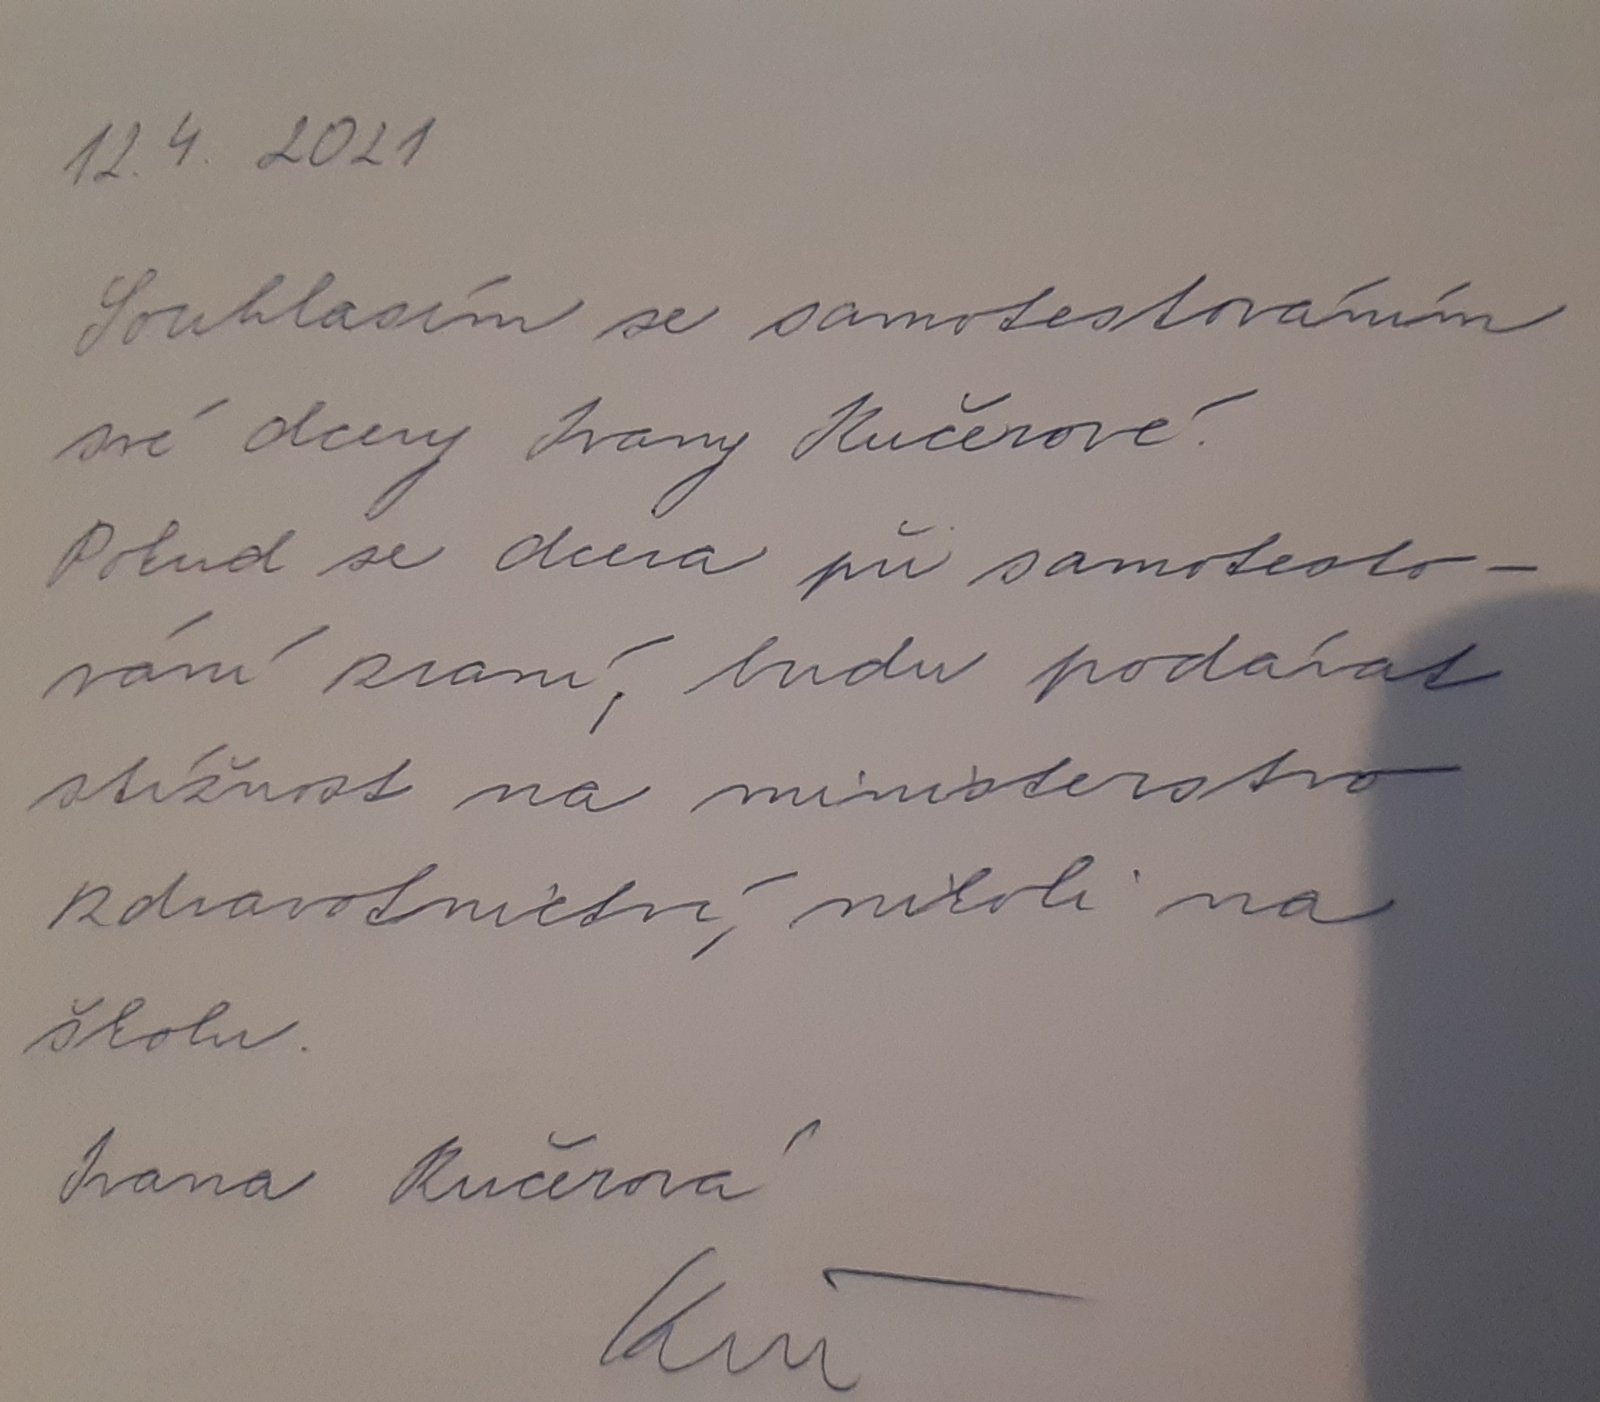 12. 4. 2021
Souhlasím se samotestováním
své dcery Ivany Kučerové.
Pokud se dcera při samotesto-
vání zraní, budu podávat
stížnost na ministerstvo
zdravotnictví, nikoli na
školu.
Ivana Kučerová